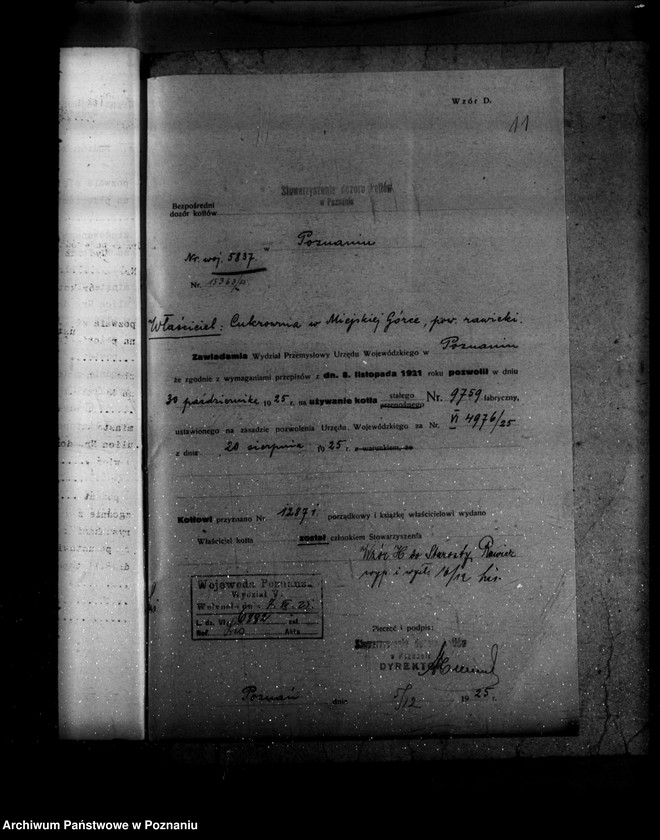 Wzór D.
11
Stowarzyszenie dozoru kotłów
w Poznaniu
Bezpośredni
dozór kotłów
w Poznaniu
Nr. woj. 5837.
Nr.
Właściciel: Cukrownia w Miejskiej Górce, pow. rawicki.
Zawiadamia Wydział Przemysłowy Urzędu Wojewódzkiego w Poznaniu
że zgodnie z wymaganiami przepisów z dn. 8. listopada 1921 roku pozwolił w dniu
30 października 1925 r. na używanie kotła stałego przewoźnego Nr. 9759 fabryczny,
ustawionego na zasadzie pozwolenia Urzędu Wojewódzkiego za Nr. VI 4976/25
z dnia 20 sierpnia 1925 r. z warunkiem, że
Kotłowi przyznano Nr. porządkowy i książkę właścicielowi wydano
Właściciel kotła został członkiem Stowarzyszenia
Wzór H do Starosty Rawicz
Wojewoda Poznański
Wydział V.
L. dz. VI zał
Ref. Akta
Pieczęć i podpis:
Stowarzyszenie dozoru kotłów
w Poznaniu
DYREKTOR
Poznań dnia 5/12 1925 r.
Archiwum Państwowe w Poznaniu